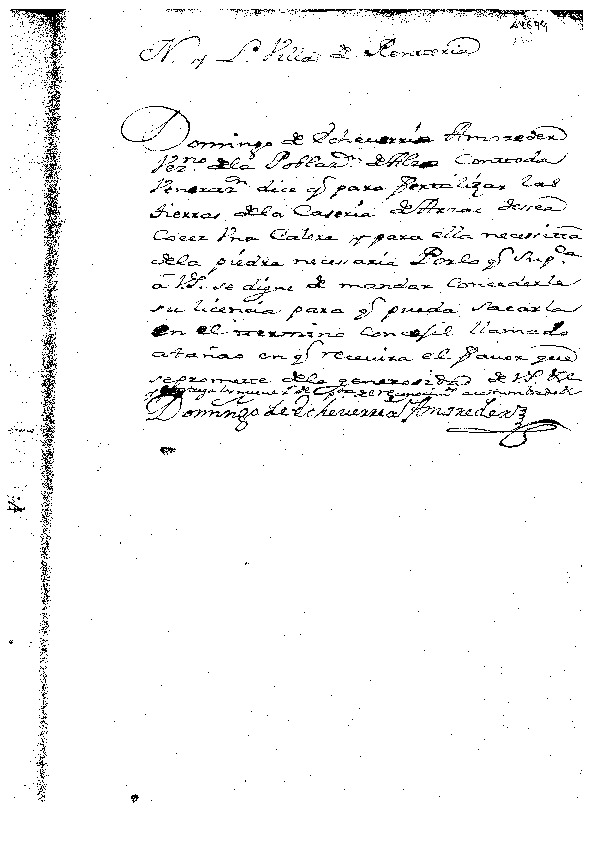 N. y L. Villa de Renteria
Domingo de Echeverria Amoreder
Vez.no de la Poblaz.n de Alza Con toda
Veneraz.n dice q para fertilizar las
tierras de la Caseria de Arnao dessea
Cocer Una Calera y para ella necessita
de la piedra necessaria Por lo q Sup.ca
a VS. se digne de mandar Concederle
su licencia para q pueda sacarla
en el termino Concejil llamado
atañao en q recevira el favor que
se promete de la generosidad de VS.
Domingo de Echeverria Amoreder